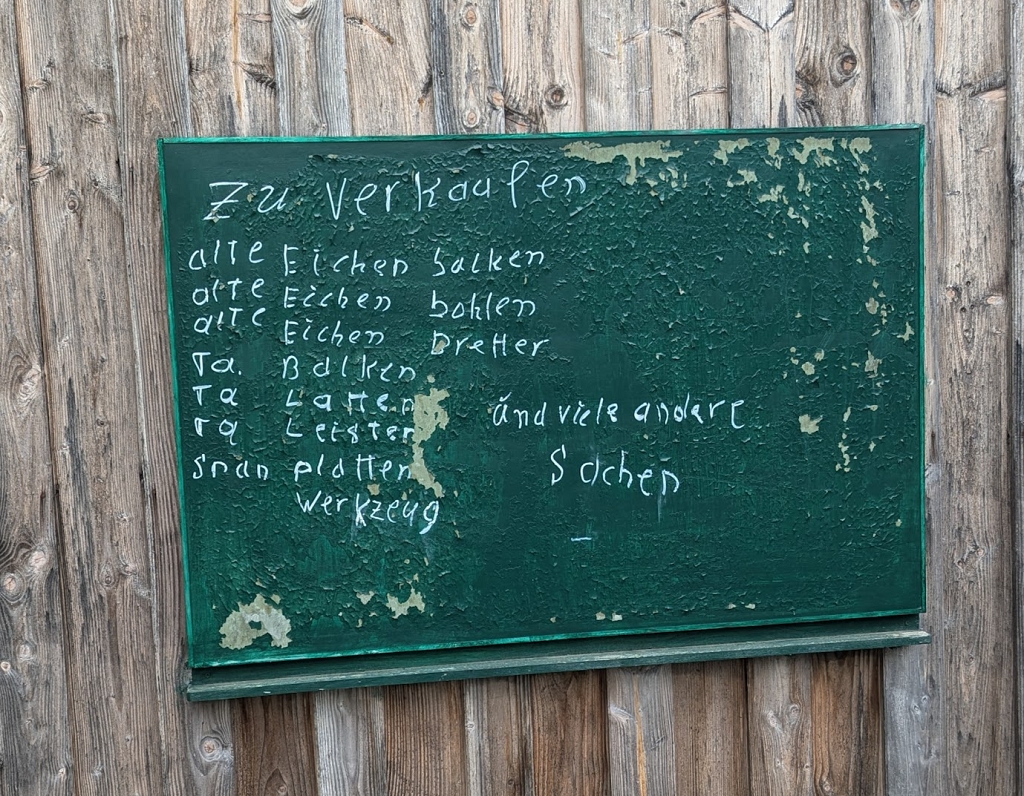 Zu verkaufen
alte Eichen balken
alte Eichen bohlen
alte Eichen Bretter
Ta. Balken
Ta Latten
Ta Leisten
Span platten
Werkzeug
und viele andere
Sachen